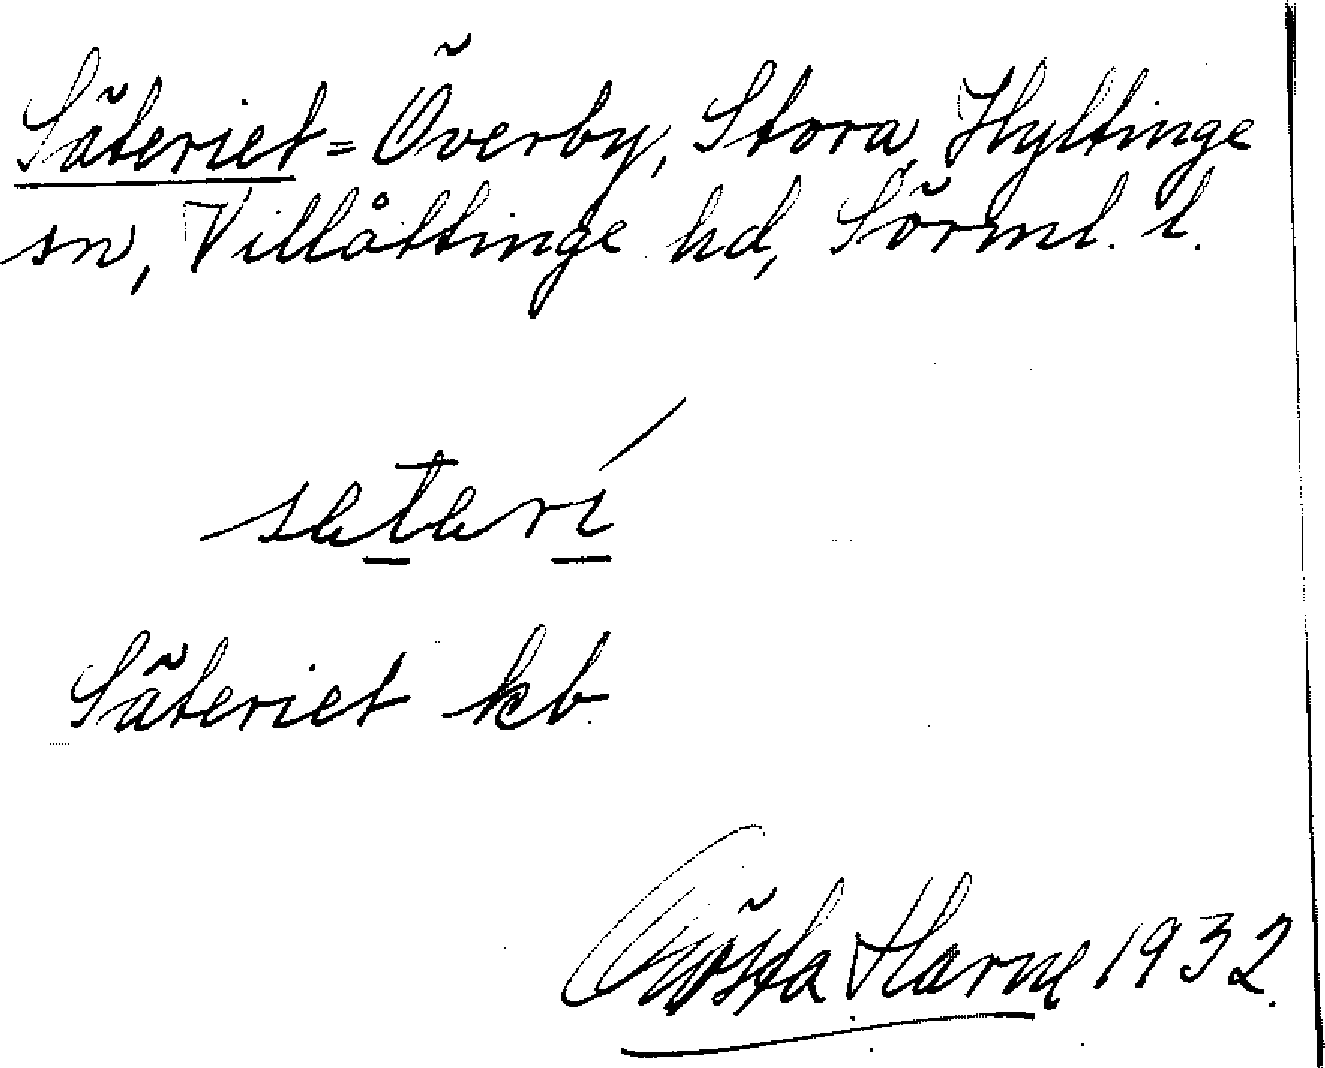 Säteriet = Överby, Stora, Hyltinge
sn, Villåttinge hd, Sörml. l.
sätäri
Säteriet kb
Gösta Harne 1932.